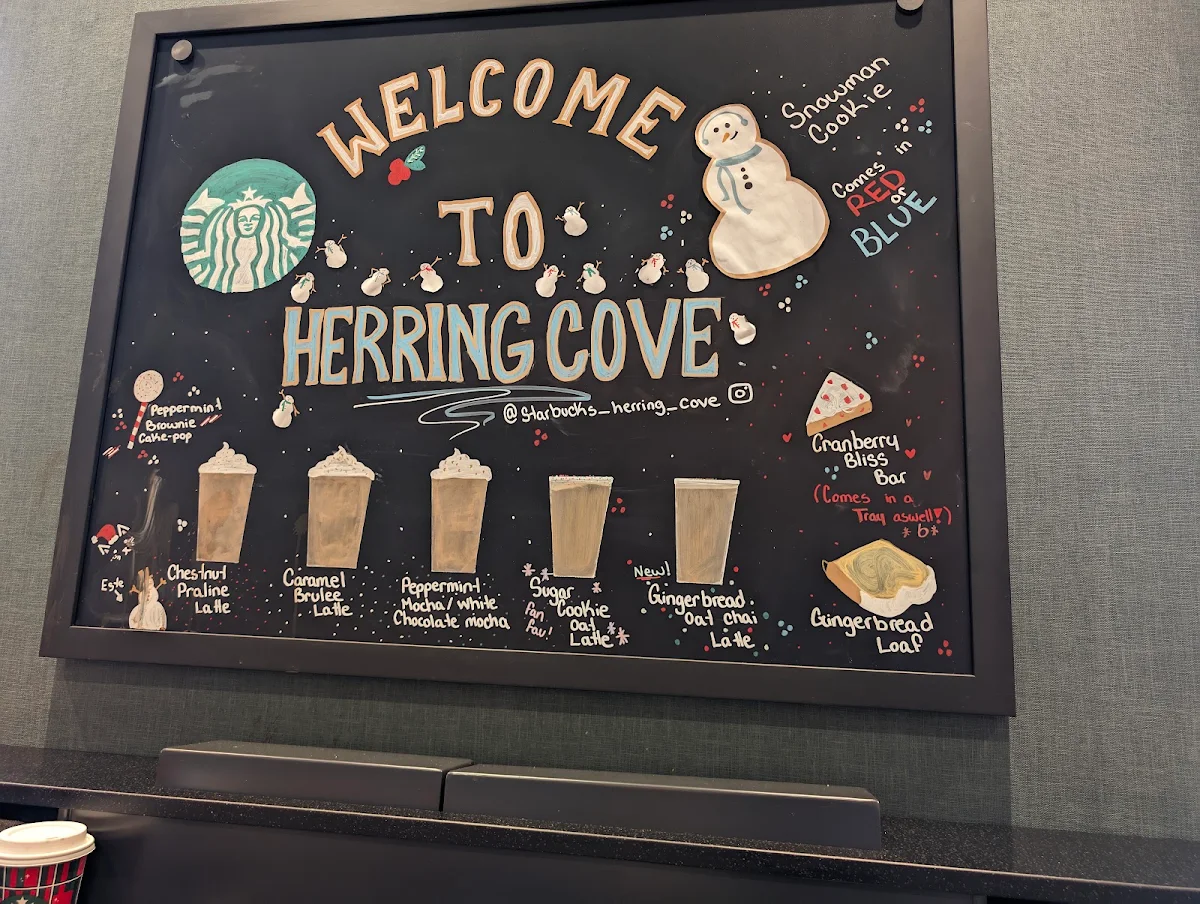 WELCOME
TO
HERRING COVE
@starbucks_herring_cove
Snowman
Cookie
Comes in
RED
or
BLUE
Peppermint
Brownie
Cake-pop
Cranberry
Bliss
Bar
(Comes in a
Tray aswell!)
Este
Chestnut
Praline
Latte
Caramel
Brulee
Latte
Peppermint
Mocha/White
Chocolate mocha
Sugar
Cookie
Oat
Latte
New!
Gingerbread
Oat chai
Latte
Gingerbread
Loaf